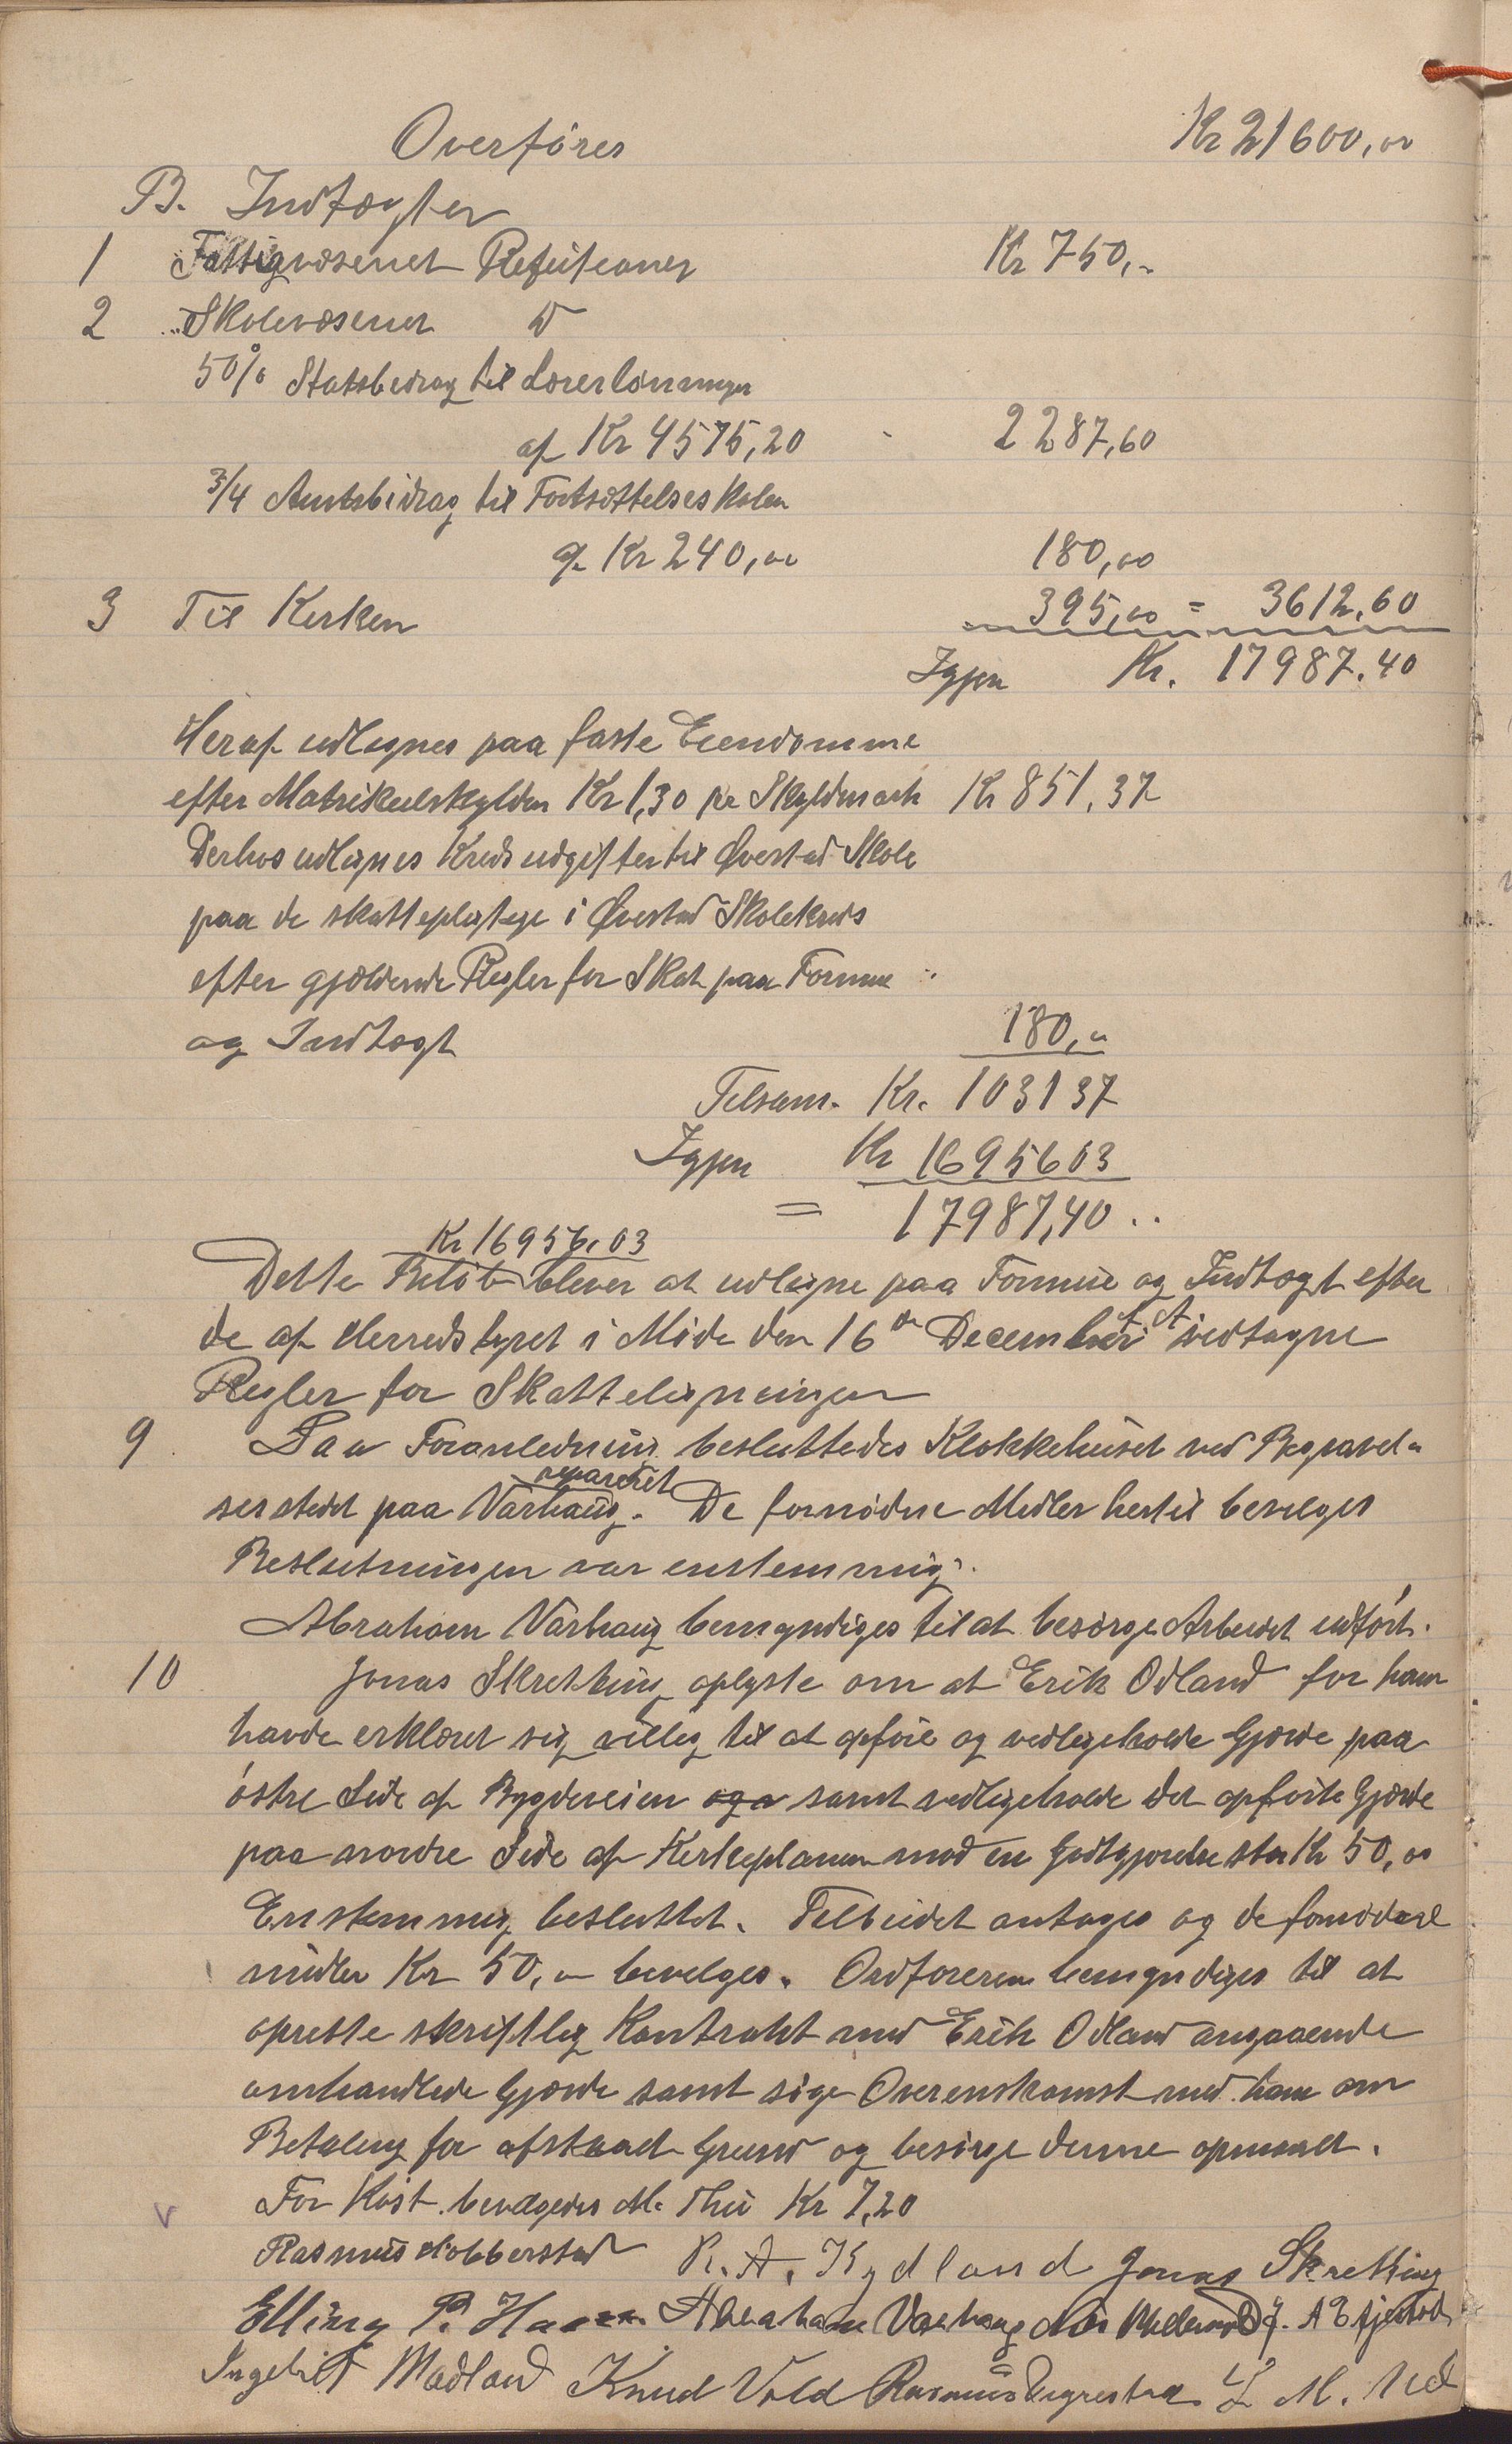 Overføres Kr 21600,00
B. Indtægter
1 Fattigvæsenet Refusioner Kr 750,-
2 Skolevæsenet D
50% Statsbidrag til Lærerlønninger
af Kr 4575,20 2287,60
3/4 Amtsbidrag til Fortsættelsesskolen
af Kr 240,00 180,00
3 Til Kirken 395,00 = 3612,60
Igjen Kr. 17987.40
Heraf udlignes paa faste Eiendomme
efter Matrikulskylden Kr 1,30 pr Skyldmark Kr 851,37
Derhos udlignes Kredsudgifter til Øvestad Skole
paa de skattepligtige i Øvestad Skolekreds
efter gjældende Regler for Skat paa Formue
og Indtægt 180,00
Tilsam. Kr. 1031 37
Igjen Kr 16956 03
= 17987,40
Kr 16956,03
Dette Beløb bliver at udligne paa Formue og Indtægt efter
de af Herredstyret i Møde den 16de December vedtagne
Regler for Skatteligningen
9. Paa Foranledning besluttedes Klokkehuset ved Begravel-
sesstedet paa Varhaug reparert. De fornødne Midler hertil bevilges
Beslutningen var enstemmig.
Abraham Varhaug bemyndiges til at besørge Arbeidet udført.
10 Jonas Skretting oplyste om at Erik Odland for ham
havde erklæret sig villig til at opføre og vedligeholde Gjærde paa
østre Side af Bygdeveien samt vedligeholde det opførte Gjærde
paa nordre Side af Kirkeplanen mod en Godtgjørelse stor Kr 50,00
Enstemmig besluttet. Tilbudet antages og de fornødne
midler Kr 50,00 bevilges. Ordføreren bemyndiges til at
oprette skriftlig Kontrakt med Erik Odland angaaende
omhandlede Gjærde samt søge Overenskomst med ham om
Betaling for afstaaet Grund og besørge denne opmaalt.
For Kost bevilgedes M. Thu Kr 7,20
Rasmus Hobberstad R. A. Kydland Jonas Skretting
Elling P. Haar Abraham Varhaug
Ingebret Madland Knud Vold Rasmus